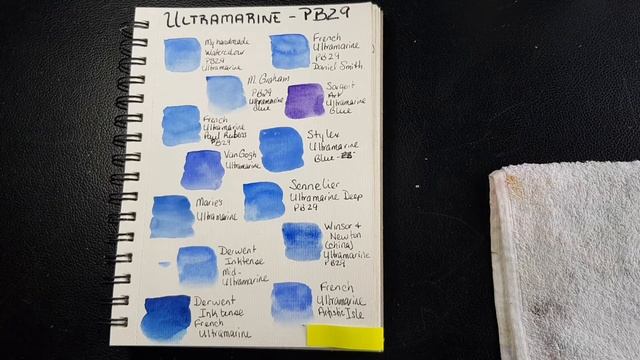 ULTRAMARINE - PB29
My handmade
Watercolour
PB29
Ultramarine
French
Ultramarine
PB29
Daniel Smith
M. Graham
PB29
Ultramarine
Blue
Sargent
Art
Ultramarine
Blue
French
Ultramarine
Paul Rubens
PB29
Stylex
Ultramarine
Blue -
Van Gogh
Ultramarine
Sennelier
Ultramarine Deep
PB29
Marie's
Ultramarine
Winsor &
Newton
(china)
Ultramarine
PB29
Derwent
Inktense
Mid-
Ultramarine
French
Ultramarine
Artistic Isle
Derwent
Inktense
French
Ultramarine